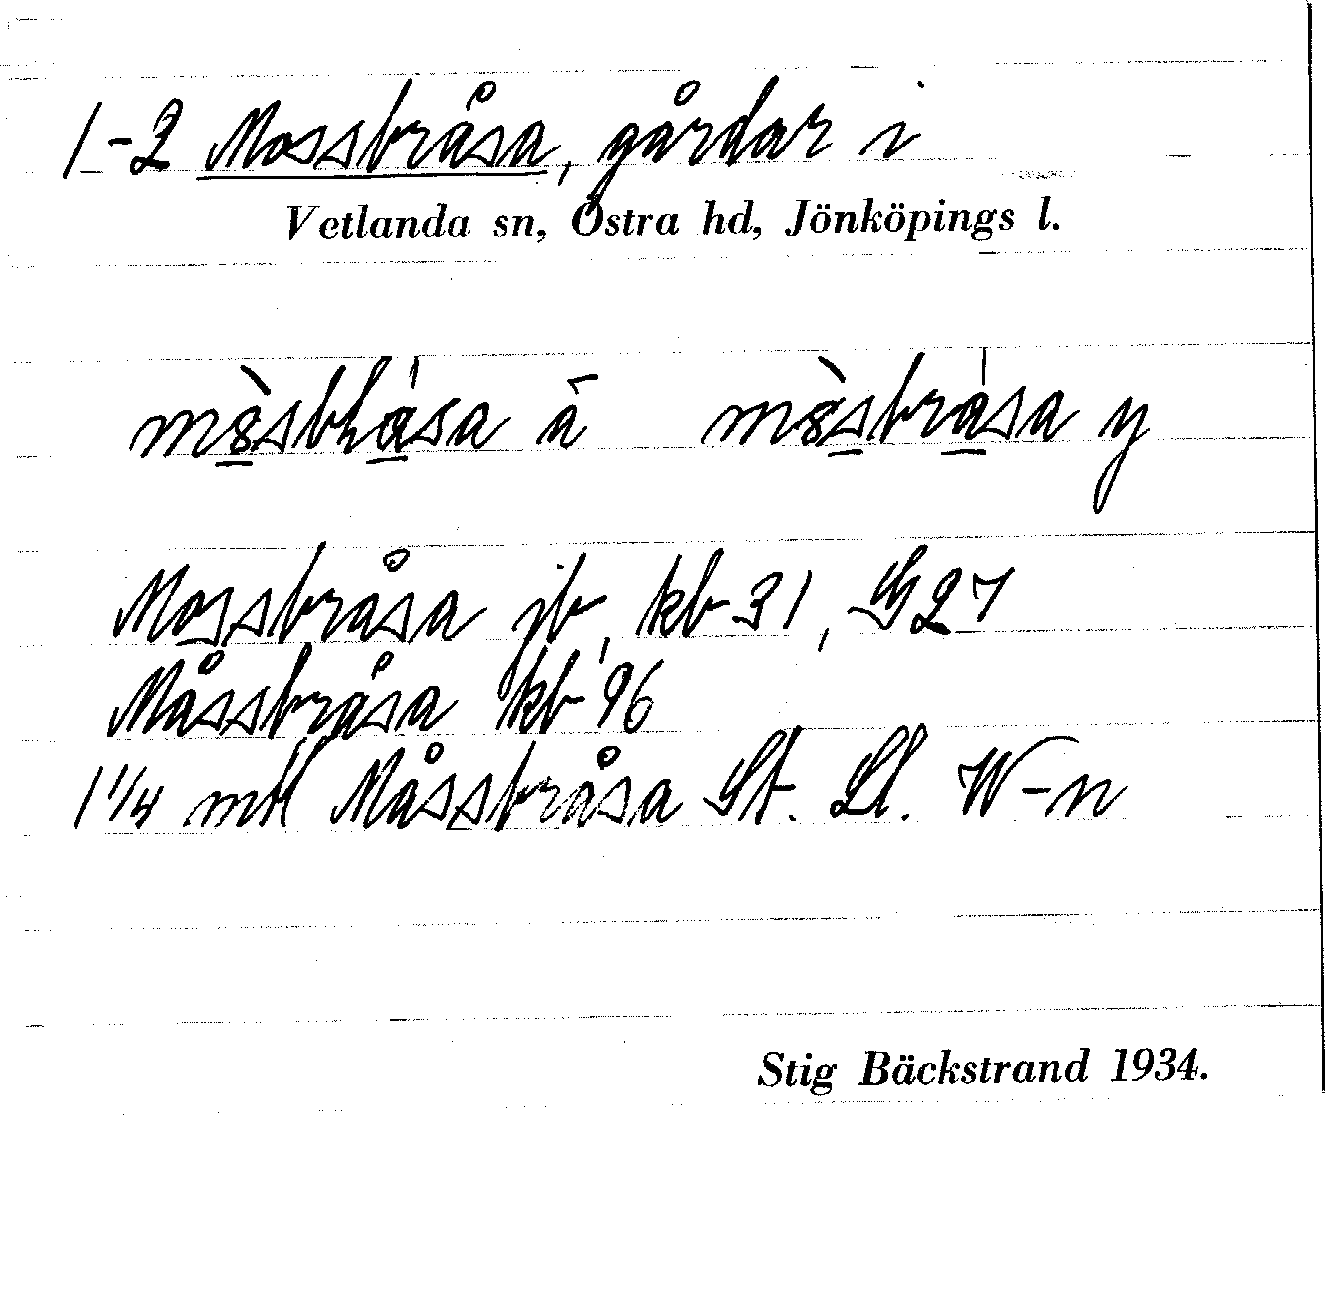 1-2 Mossbråsa, gårdar i
Vetlanda sn, Östra hd, Jönköpings l.
ä y
Mossbråsa jb, kb 31, G 27
Måssbråsa kb 96
1 1/4 mtl Måssbråsa St. Ll. W-n
Stig Bäckstrand 1934.